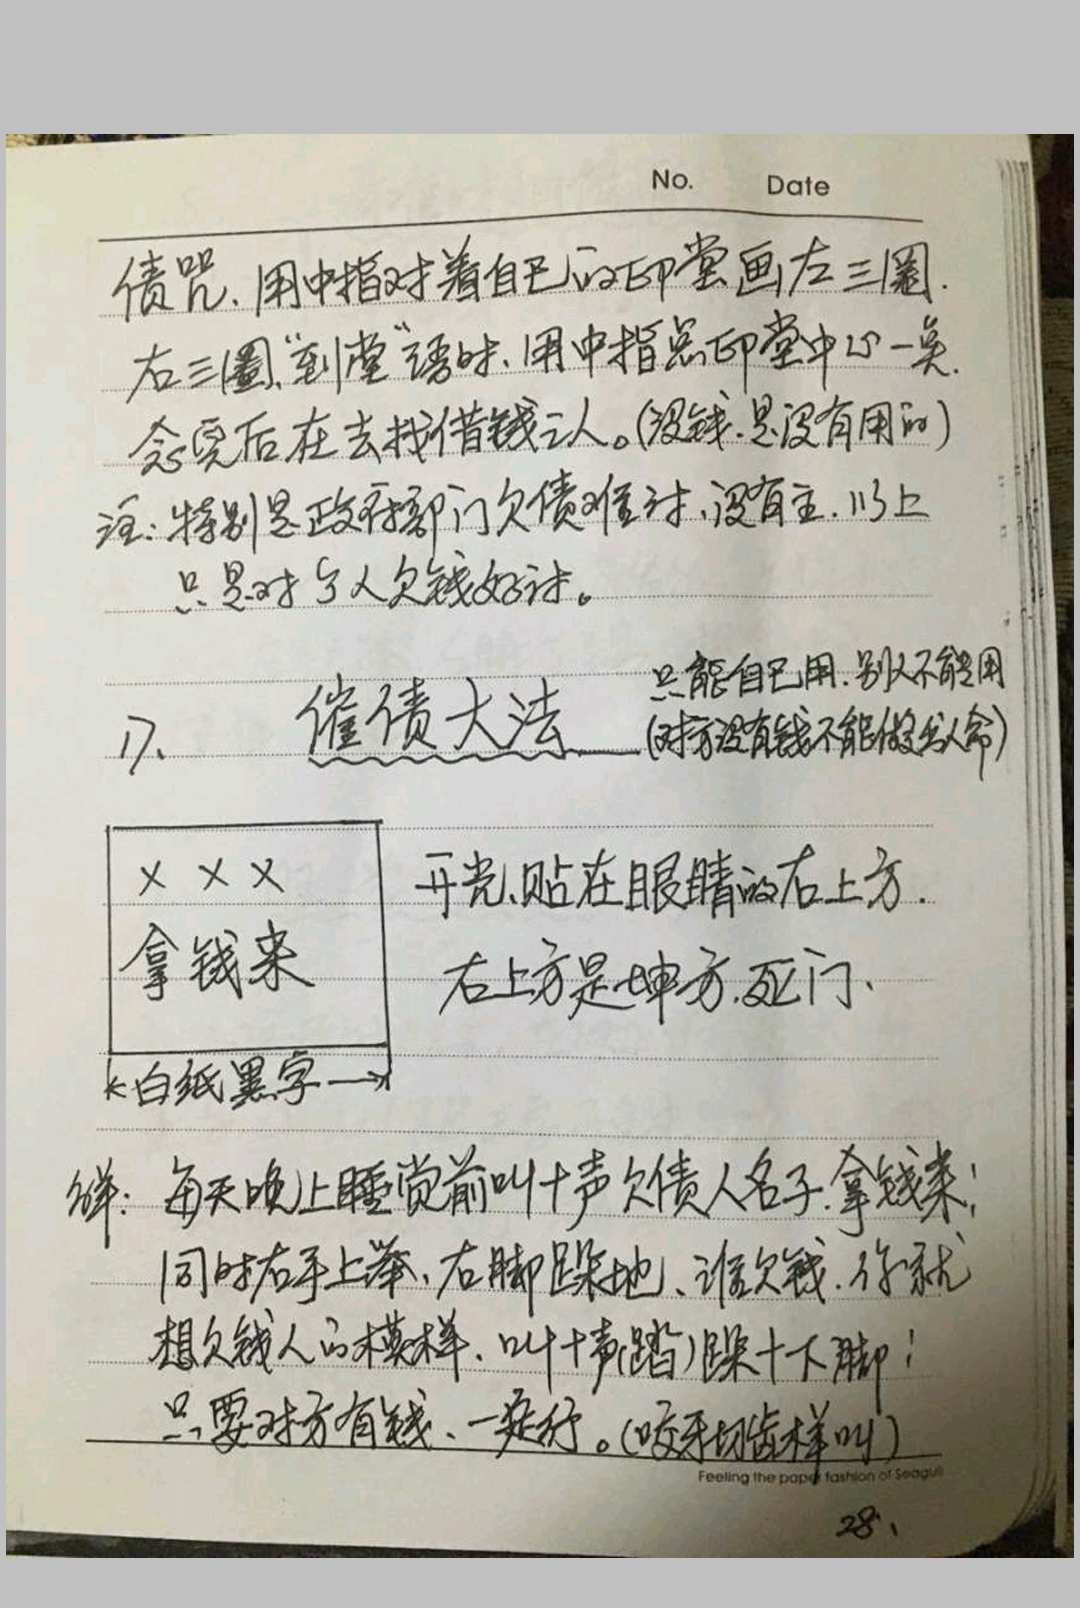 No. Date
债咒、用中指对着自己的印堂画左三圈.
右三圈、"到堂"语时、用中指点印堂中心一点.
念完后在去找借钱之人。(没钱.是没有用的)
注:特别是政府部门欠债难讨、没有主.以上
只是对个人欠钱好讨。
只能自己用.别人不能用
17、 催债大法 (对方没有钱不能做出人命)
× × ×
拿钱来
开光、贴在眼睛的右上方.
右上方是坤方.死门、
白纸黑字
每天晚上睡觉前叫十声欠债人名子.拿钱来!
同时右手上举、右脚跺地、谁欠钱.你就
想欠钱人的模样.叫十声(踏)跺十下脚!
只要对方有钱、一定行。(咬牙切齿样叫)
Feeling the paper fashion of Seagull
28、